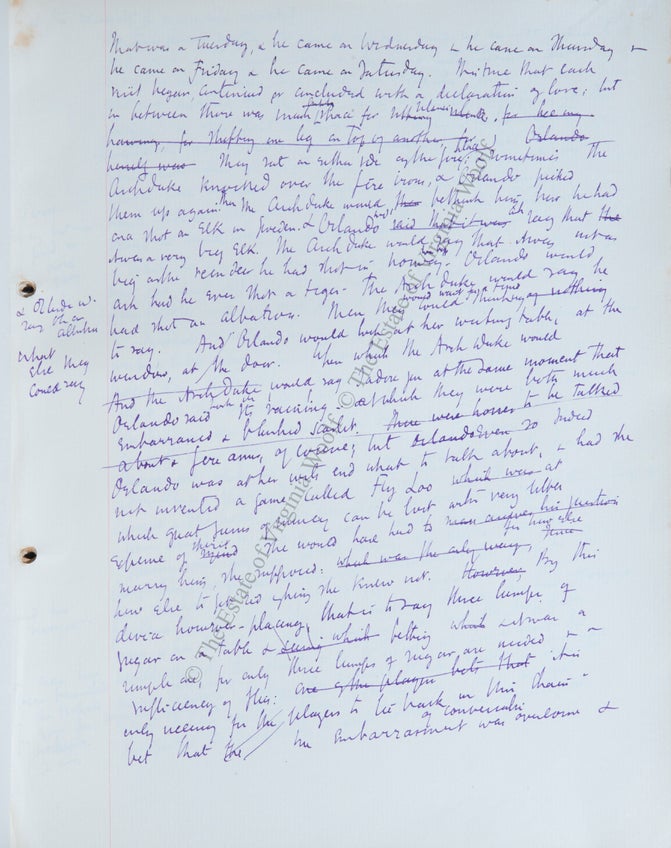 That was a Tuesday, & he came on Wednesday & he came on Thursday &
he came on Friday & he came on Saturday. that each
visit began, continued or concluded with a declaration of love; but
in between there was much space for silence.
having, for shifting one leg on top of another, for Orlando
herself was They sat on either side of the fire; sometimes the
Archduke knocked over the fire irons, & Orlando picked
them up again. The Archduke would bethink him how he had
once shot an Elk in Sweden. & Orlando said that it was say that the
It was a very big Elk. The Archduke would say that it was not as
big as the reindeer he had shot in Norway. Orlando would
ask had he ever shot a tiger. The Archduke would say he
had shot an albatross. Then there would nothing
to say. And Orlando would look at her writing table, at the
window, at the door. Then the Archduke would
And the Archduke would say I adore you at the same moment that
Orlando said it's raining. at which they were both much
Embarrassed & blushed scarlet. There were horses to be talked
about & of course; but Orlando even so Indeed
Orlando was at her wits end what to talk about, & had she
not invented a game called Fly Loo which was at
which great sums of money can be lost with very little
expense of she would have had to
marry him, she supposed: which was the only way,
how else to get rid of him she knew not. However, By this
device however – placing, that is to say three lumps of
sugar on a table & betting which & it was a
simple one, for only three lumps of sugar are needed & a
sufficiency of flies: one of the players bets that it is
only necessary for the players to lie back in their chair
bet that the the Embarrassment of conversation was overcome &
& Orlando w.
say
albatross
what
else they
could say
© The Estate of Virginia Woolf. © The Estate of Virginia Woolf.